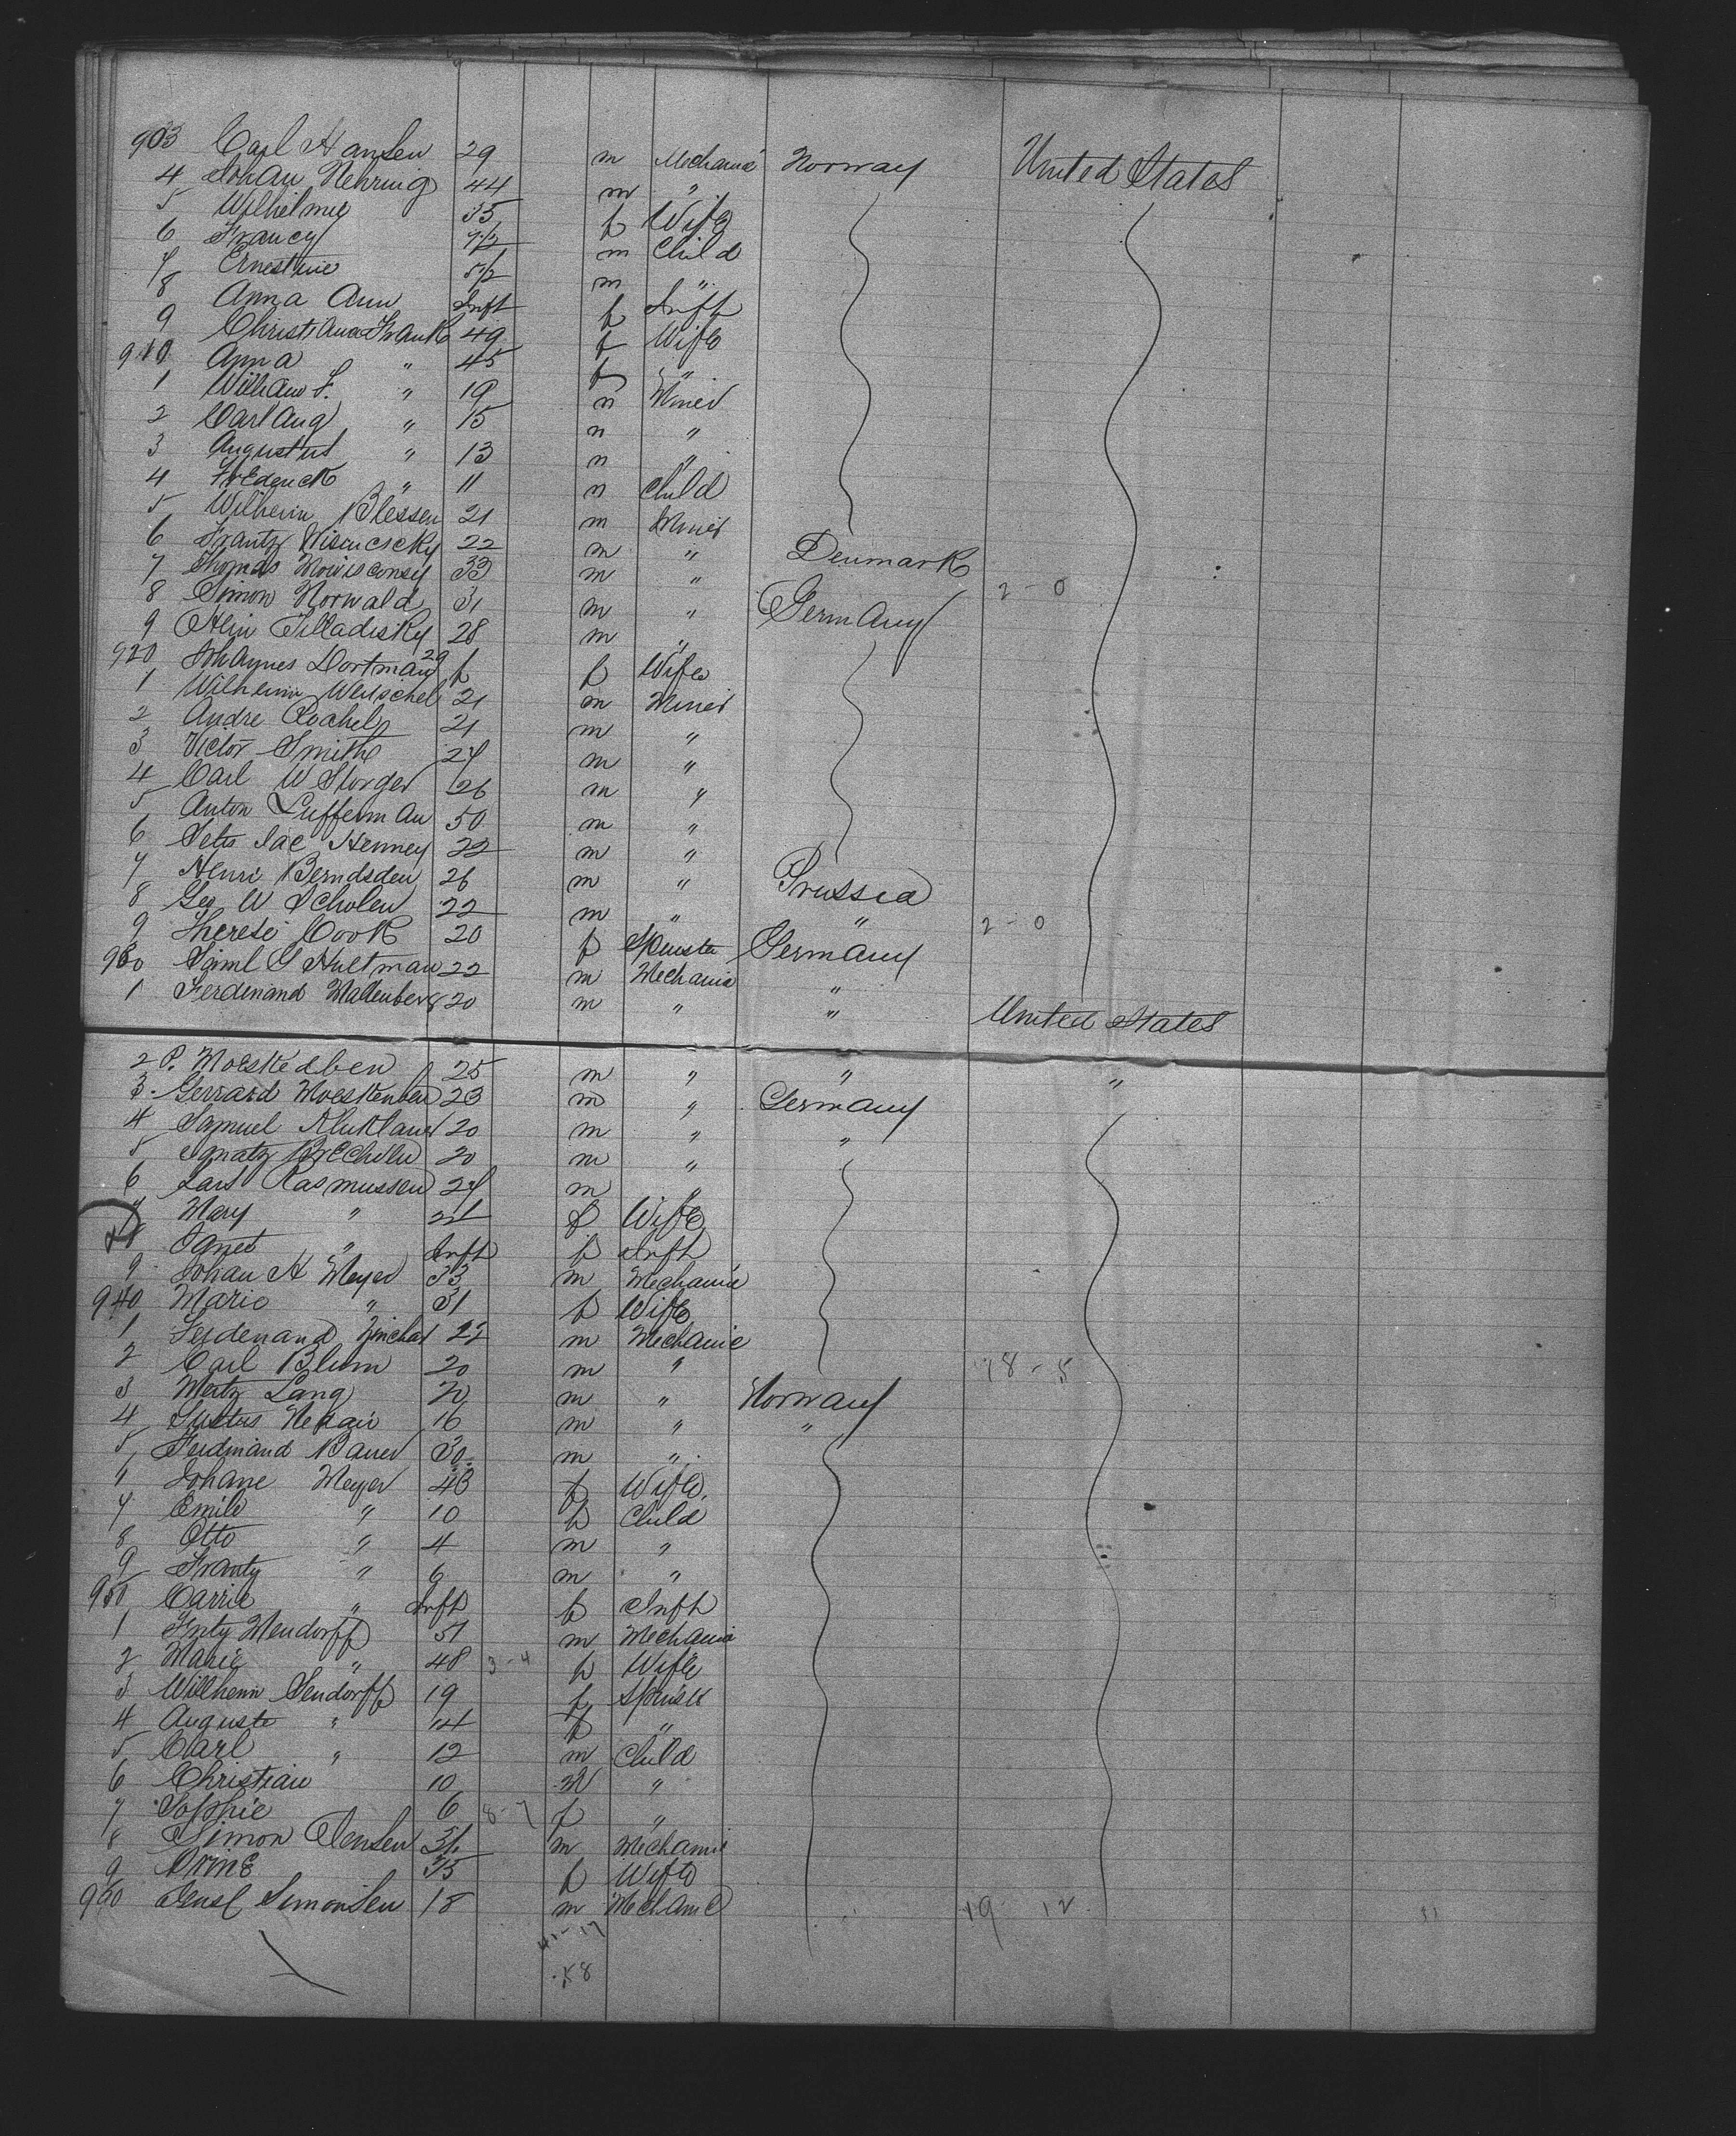 903 Carl Hansen 29 m Mechanic Norway United States
4 Johan Nehring 44 m "
5 Wilhelmie 35 f Wife
6 Francy 7/12 m Child
7 Ernestine 5/12 m "
8 Anna Ann Inft f Inft
9 Christiana Frank 49 f Wife
910 Anna " 45 f "
1 William F. " 19 m Miner
2 Carl Aug " 15 m "
3 Augustus " 13 m "
4 Frederick " 11 m Child
5 Wilheim Blessen 21 m Miner
6 Frantz 22 m " Denmark
7 Thomas 33 m " 2-0
8 Simon Norwald 31 m " Germany
9 28 m "
920 Johannes Dortman 29 f f Wife
1 Wilheim Weuschel 21 m Miner
2 Andre 21 m "
3 Victor Smith 24 m "
4 Carl W Storger 26 m "
5 Anton Luffeman 50 m "
6 Jac Henney 22 m "
7 Henri Berndsden 26 m " Prussia
8 Geo W Scholen 22 m " "
9 Therese Cook 20 f Spinster Germany 2-0
930 G Hultman 22 m Mechanic "
1 Ferdenand Mallenberg 20 m " " United States
2 P. Moeskedben 25 m " " "
3 Gerrard Moeskenben 23 m " Germany
4 Samuel 20 m " "
5 Ignatz 20 m "
6 Lars Rasmussen 24 m "
7 Mary " 21 f Wife
8 Agnes " Inft f Inft
9 Johan H Meyer 33 m Mechanic
940 Marie " 31 f Wife
1 Ferdenand 22 m Mechanic
2 Carl Blum 20 m " 18-5
3 Lang 20 m " Norway
4 Justus 16 m " "
5 Ferdinand Bauer 30 m "
" Johane Meyer 43 f Wife
7 Emile " 10 f Child
8 Otto " 4 m "
9 Frantz " 6 m "
950 Carrie " Inft f Inft
1 Fritz Wendorff 51 m Mechanic
2 Marie " 48 3-4 f Wife
3 Willheim Sendorff 19 f
4 Auguste " 14 f "
5 Carl " 12 m Child
6 Christian 10 m "
7 Sophie 6 8-7 f "
8 Simon Jensen 36 m Mechanic
9 35 f Wife
960 Simonsen 18 m Mechanic 19 12
41-17
58